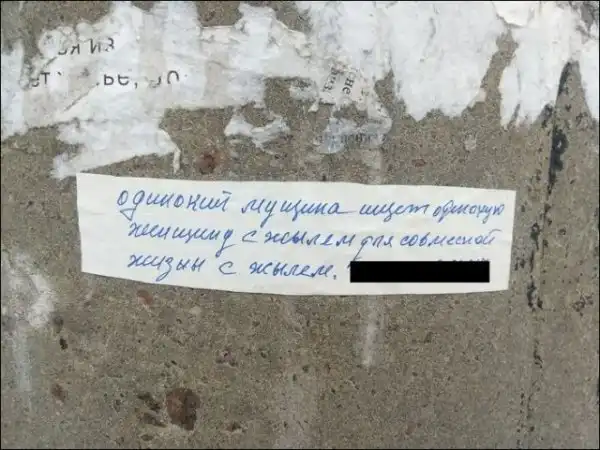 ья из
не
одинокий мущина ищет одинокую
женщину с жылем для совмесной
жизьи с жылем.